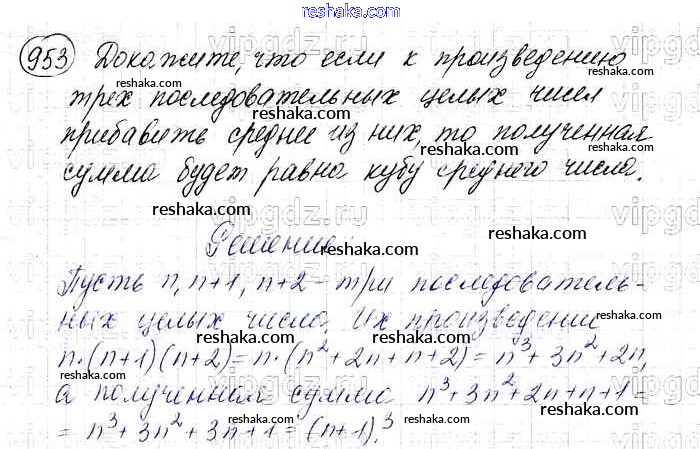 reshaka.com
953 Докажите, что если к произведению
трех последовательных целых чисел
прибавить среднее из них, то полученная
сумма будет равна кубу среднего числа.
Решение.
Пусть n, n+1, n+2 – три последователь-
ных целых числа. Их произведении
n·(n+1)(n+2) = n·(n²+2n+n+2) = n³+3n²+2n,
а полученная сумма n³+3n²+2n+n+1 =
= n³+3n²+3n+1 = (n+1).³